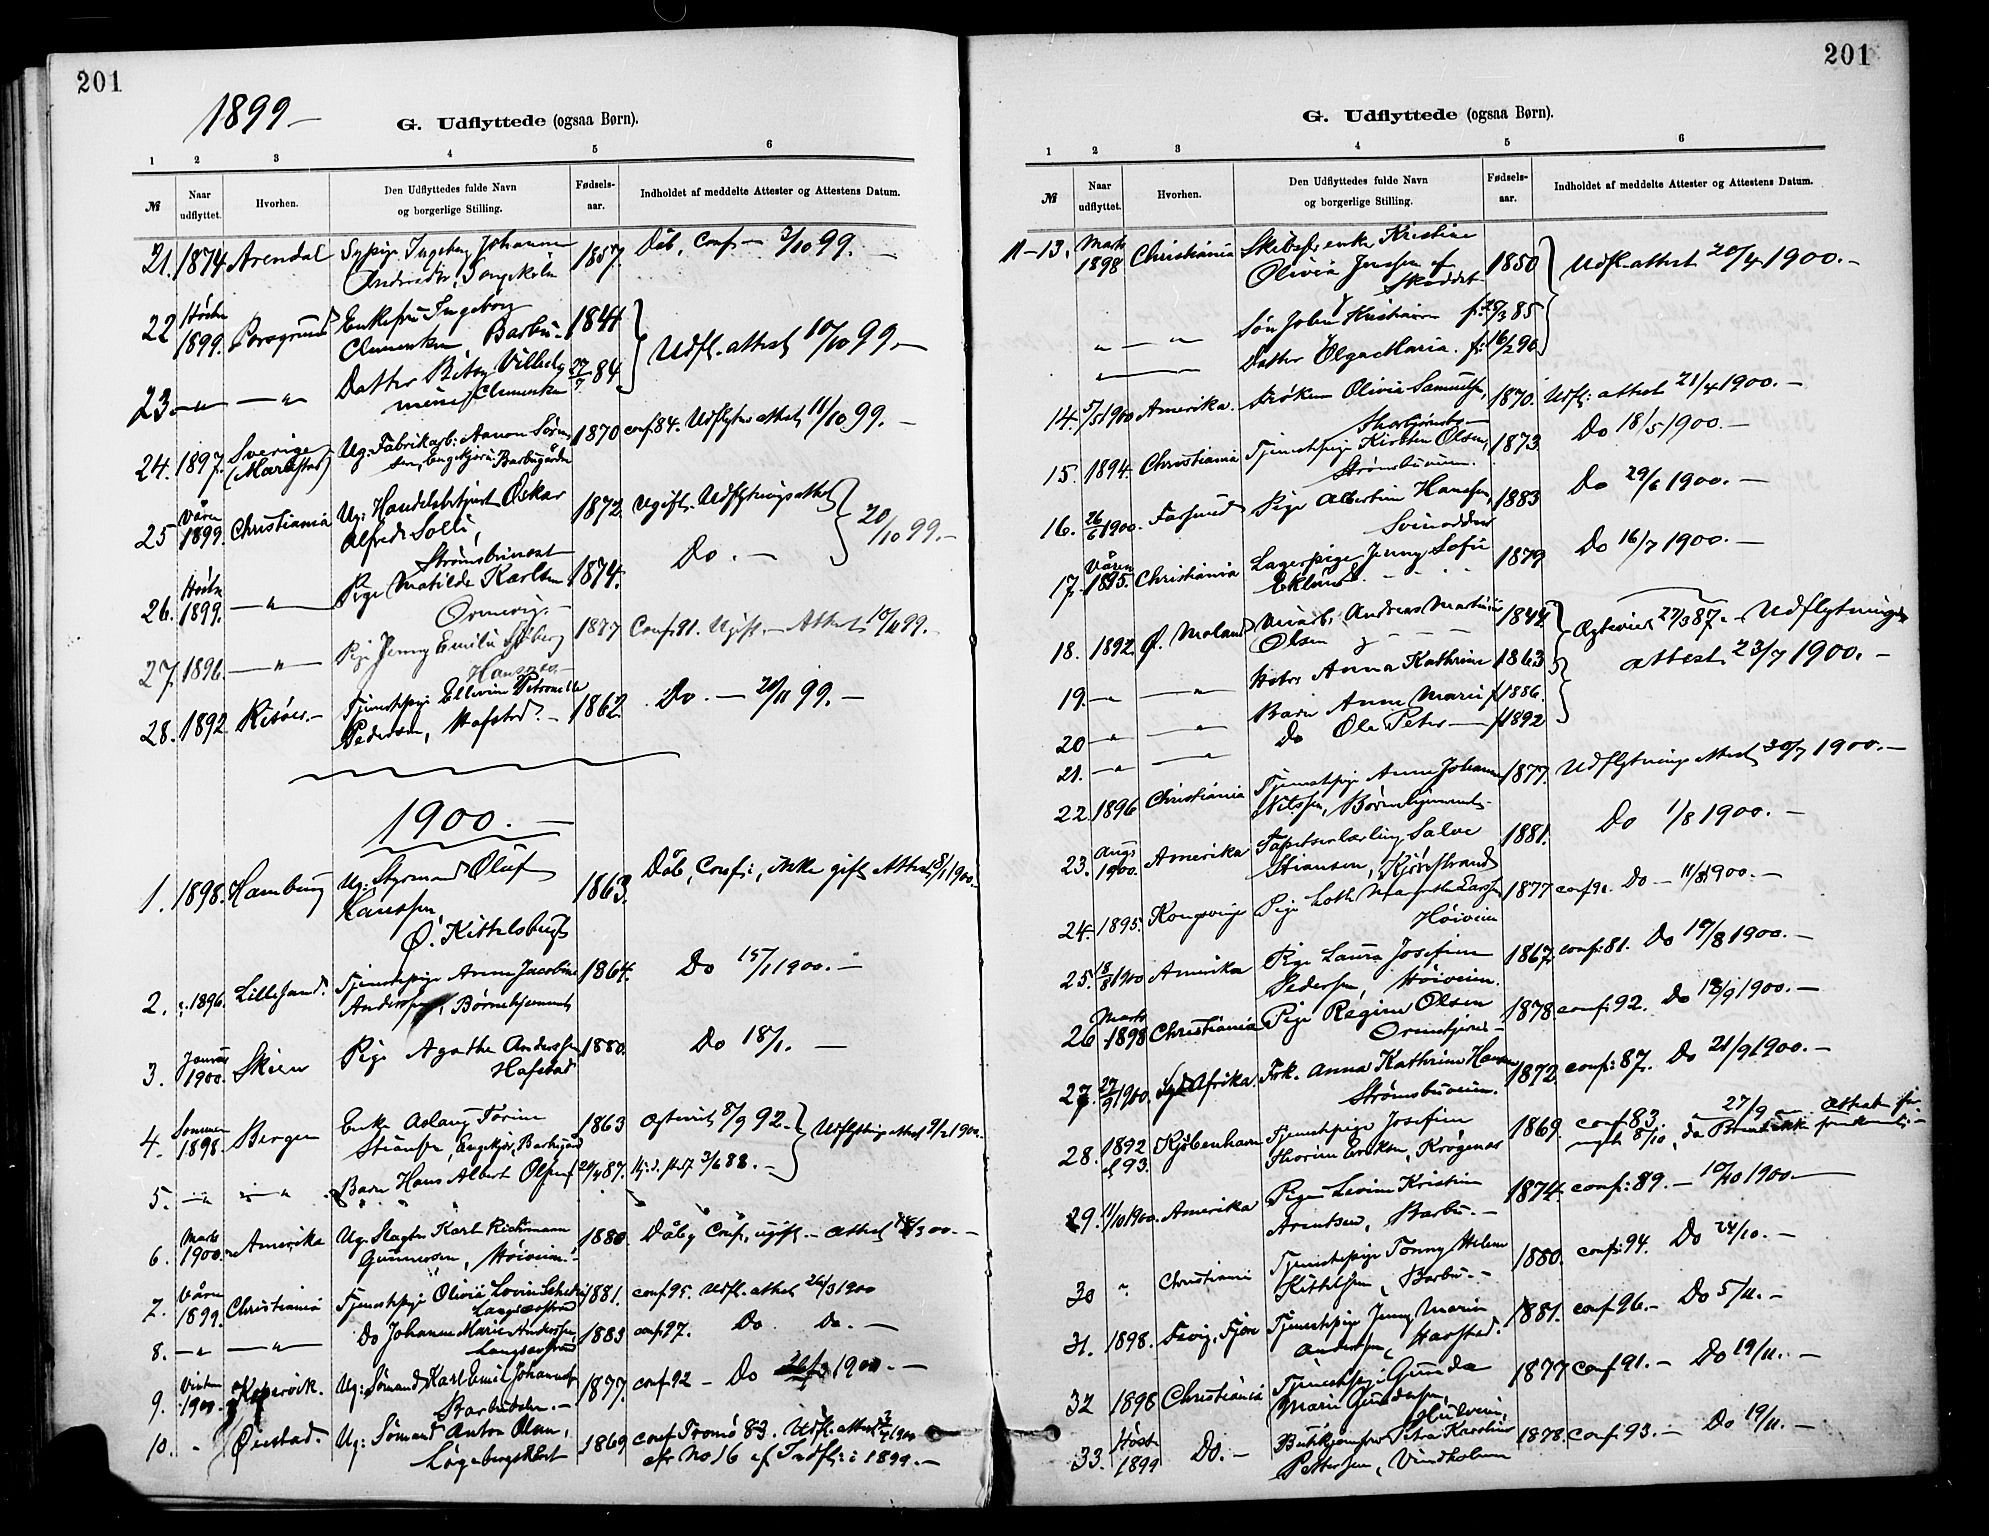 201
1899 –
G. Udflyttede (ogsaa Børn).
1 2 3 4 5 6
№ Naar udflyttet. Hvorhen. Den Udflyttedes fulde Navn og borgerlige Stilling. Fødsels-aar. Indholdet af meddelte Attester og Attestens Datum.
21. 1874. Arendal Sypige Ingeborg Johanne 1857. Dåb, Conf – 3/10 99. –
22 1899. Porsgrund Enkefru Ingeborg 1844 Udfl. attest 10/10 99. –
Clementsen Barbu –
23 – " – – " Datter Betsy Vilhelm 27/7 84
mine Clementsen
24. 1897. Sverige Ug: Fabrikarb: Aanon Søren 1870 conf 84. Udflytn attest 11/10 99. –
(Mariestad) sen, Engekjær i Barbugården
25 Våren 1899. Christiania Ug: Handelsbetjent Oskar 1872. Ugift. Udflytningsattest 20/10 99. –
Alfred Solli,
Strømsbuneset
26. Høsten 1899. – " – Pige Matilde Karlsen 1874. Do. –
27. 1896. – " – Pige Jenny Emilie Sjøberg 1877 Conf 91. Ugift – Attest 10/11 99. –
28. 1892 Risøer. – Tjenestepige Ellevine Petronelle 1862. Do. – 20/11 99. –
Pedersen, Hafstad. –
1900. –
1. 1898. Hamburg Ug: Styrmand Oluf 1863. Dåb, Conf:, ikke gift Attest 8/1 1900. –
Hanssen,
Ø. Kittelsbugt
2. 1896. Lillesand. Tjenestepige Anne Jacobine 1864. Do 15/1 1900. –
Anderssen, Børnehjemmet
3. Januar 1900. Skien Pige Agathe Anderssen 1880. Do 18/1. –
Hafstad
4. Sommer 1898. Bergen Enke Aslaug Torine 1863 Ægteviet 8/9 92. – Udflytnings attest 1900. –
Stiansen, Engekjær, Barbugård
5. – " – – " – Barn Hans Albert Olsen f 29/4 87. 3/6 88. –
6. Marts 1900. Amerika Ug: Slagter Karl Rickmann 1880. Dåb, Conf, ugift – attest /3 00. –
Gunnersen, Høiveien. –
7. Våren 1899. Christiania Tjenestepige Olivia Lovise 1881. conf 95. Udfl. attest 26/3 1900
Langsævstrand
8. – " – – " – Do Johanne Marie Anderssen 1883 conf 97. Do Do. –
Langsævstrand
9. Vinteren 1900. Kopervik. Ug: Sømand Karl Emil Johannes 1877. conf 92 – Do 1900. –
10. - Øiestad. Ug: Sømand Anton Olsen, 1869 conf Tromø 83. Udfl. attest 3/4 1900
Løgebergskleiv cfr No 16 af Indfl: i 1899. –
201
G. Udflyttede (ogsaa Børn).
1 2 3 4 5 6
№ Naar udflyttet. Hvorhen. Den Udflyttedes fulde Navn og borgerlige Stilling. Fødsels-aar. Indholdet af meddelte Attester og Attestens Datum.
11–13. Marts 1898 Christiania Skibsf. enke Kristine 1850 Udfl. attest 20/4 1900. –
Olivia Jenssen af
– " – " Søn John Kristian f. 25/3 85
– " – Datter Olga Maria. f: 16/2 90
14. 5/5 1900 Amerika. Frøken Olivia Samuelsen, 1870. Udfl: attest 21/4 1900. –
15. 1894. Christiania Tjenestepige Kirsten Olsen, 1873. Do 18/5 1900. –
Strømsbuveien.
16. 26/6 1900. Farsund Pige Albertine Hanssen, 1883 Do 29/6 1900. –
Svinodden
17. Våren 1895. Christiania Lagerpige Jenny Sofie 1879 Do 16/7 1900. –
Eklund. - - -
18. 1892. Ø. Moland Andreas Martinius 1844 Ægteviet 27/3 87. – Udflytnings
Olsen
attest 23/7 1900. –
19. – " – – " Hstr Anna Kathrine 1863
20 – " – – " Barn Anne Marie f 1886.
21. – " – – " Do Ole Peter – f 1892
22. 1896 Christiania Tjenestepige Anne Johanne 1877. Udflytnings Attest 30/7 1900. –
Nilssen, Børnehjemmet. –
23. Aug: 1900. Amerika Tapetserlærling Salve 1881. Do 1/8 1900. –
Stiansen, Kjørestrand
24. 1895. Kongsvinger Pige Lotte Margrethe Larssen 1877 conf 92. Do – 11/8 1900. –
Høiveien
25. 18/8 1900 Amerika Pige Laura Josefine 1867. conf: 81. Do 17/8 1900. –
Pedersen, Høiveien.
26 Marts 1898 Christiania Pige Regine Olsen 1878 conf: 92. Do /9 1900. –
27. 27/9 1900. Syd Afrika. Frk. Anna Kathrine Hansen 1872. conf: 87. Do 21/9 1900. –
Strømsbuveien.
28. 1892 el 93. Kjøbenhavn Tjenestepige Josefine 1869. conf 83. 27/9 Attest
Thorine Eriksen, Krøgenæs nyt 8/10, da ikke fremkommet. –
29. 11/10 1900. Amerika Pige Levine Kristine 1874. conf: 89. – 10/10 1900. –
Arentsen, Barbu. –
30 " Christiania Tjenestepige Tonny Helene 1880. conf: 94. Do 24/10. –
Kittelsen, Barbu. –
31. 1898. Fevig, Fjære Tjenestepige Jenny Marie 1881. conf 96. – Do 5/11. –
Anderssen, Havstad.
32 1898 Christiania Tjenestepige Gunda 1877 conf 91. – Do 19/11. –
Marie Gundersen,
33. Høst 1899 Do. – Butikjomfru Petra Karoline 1878. conf 93. – Do 19/11. –
Pettersen, Vindholmen